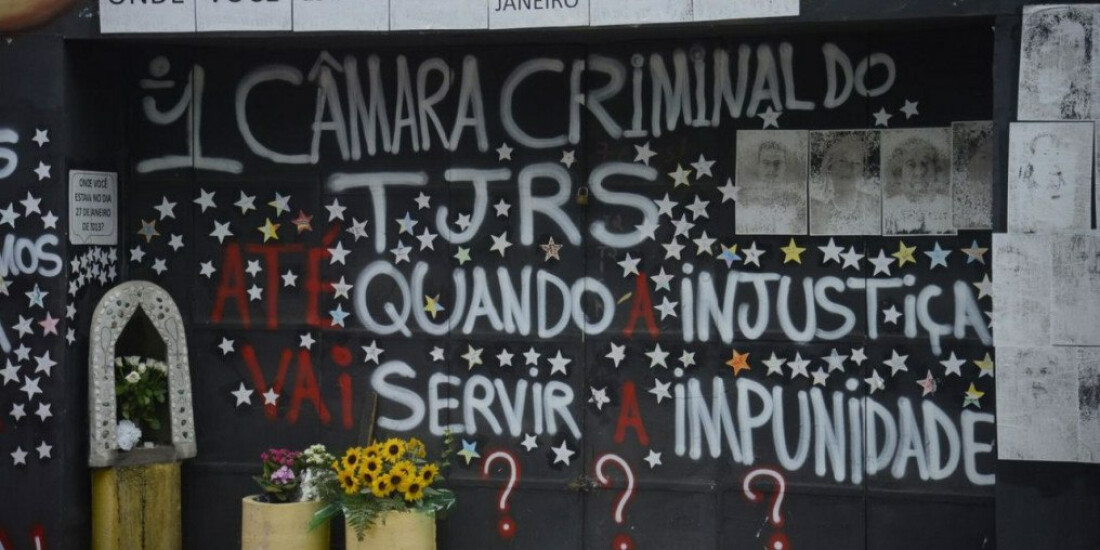 ONDE VOCÊ
JANEIRO
1 CÂMARA CRIMINAL DO
TJRS
ONDE VOCÊ
ESTAVA NO DIA
27 DE JANEIRO
DE 2013?
MOS
ATÉ QUANDO A INJUSTIÇA
VAI SERVIR A IMPUNIDADE
? ? ?